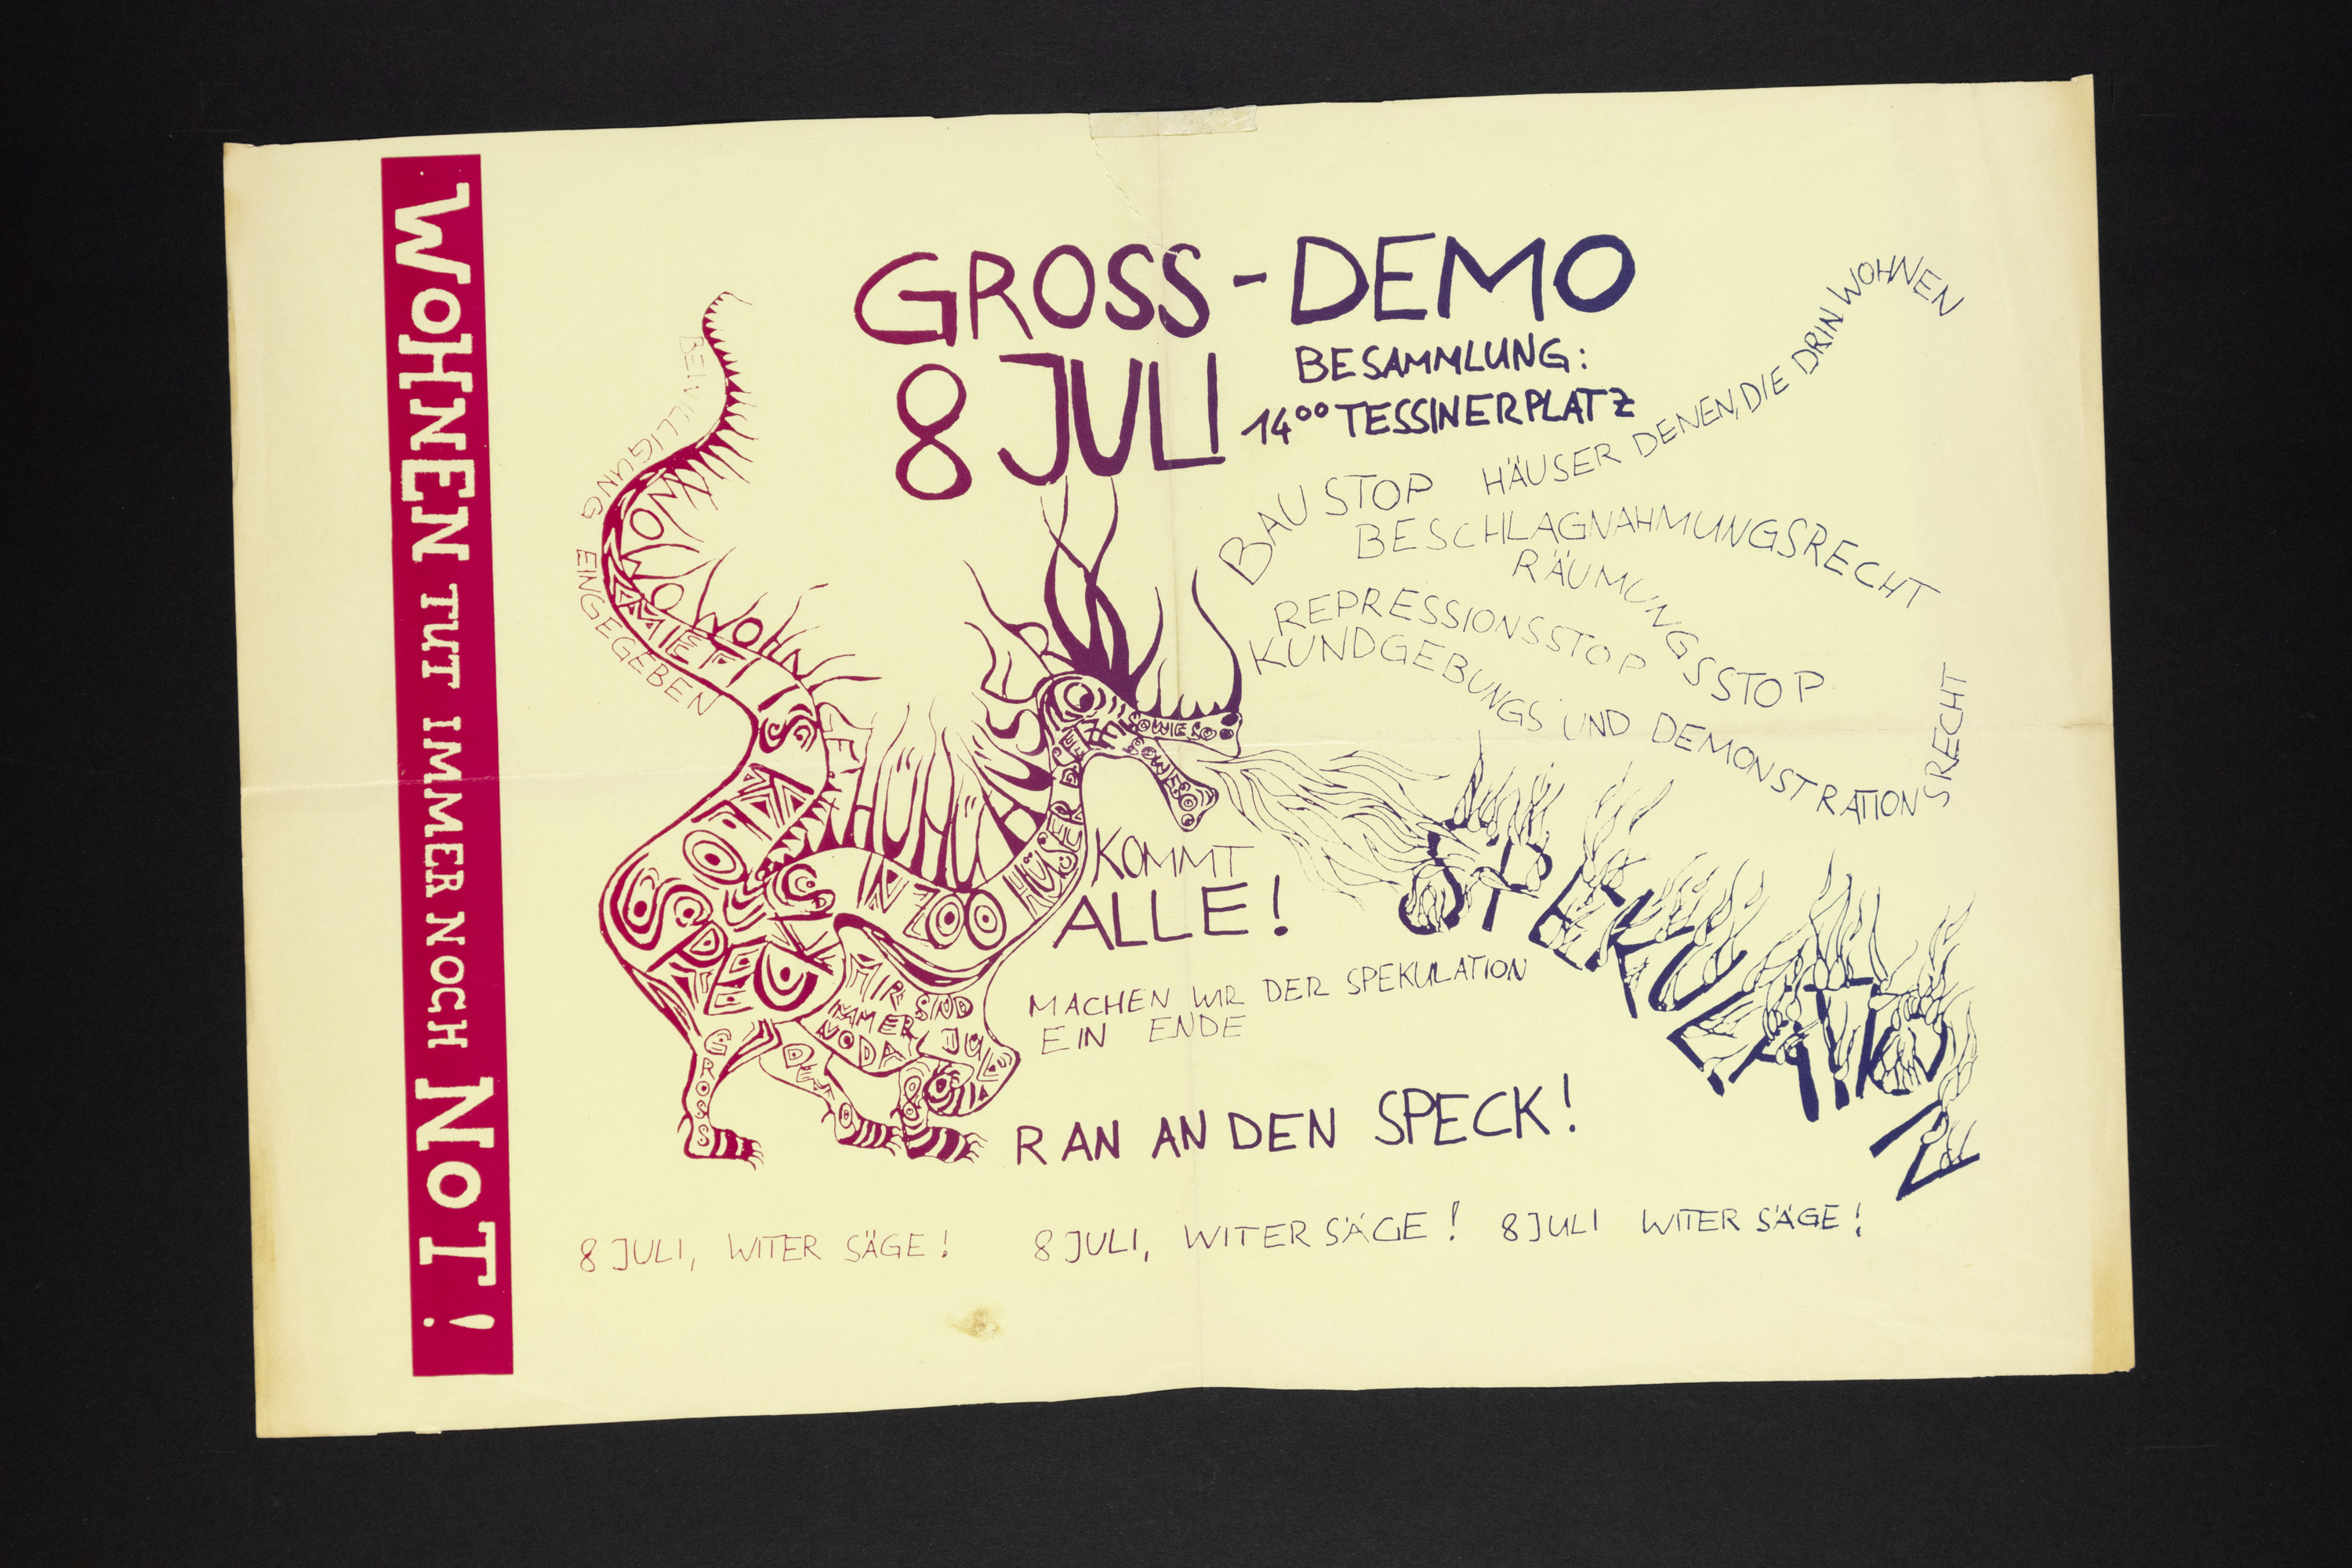 WOHNEN TUT IMMER NOCH NOT!
GROSS-DEMO
8 JULI
BESAMMLUNG:
14⁰⁰ TESSINERPLATZ
BAUSTOP
HÄUSER DENEN, DIE DRIN WOHNEN
BESCHLAGNAHMUNGSRECHT
RÄUMUNGSSTOP
REPRESSIONSSTOP
KUNDGEBUNGS UND DEMONSTRATIONSRECHT
BEWILLIGUNG EINGEGEBEN
HÜSER
SOWIESO
SOWIESO
MIR SIND
IMMER
NO DA
GROSS
DEMO
8
JULI
KOMMT
ALLE!
MACHEN WIR DER SPEKULATION
EIN ENDE
SPEKULATION
RAN AN DEN SPECK!
8 JULI, WITER SÄGE! 8 JULI, WITER SÄGE! 8 JULI WITER SÄGE!